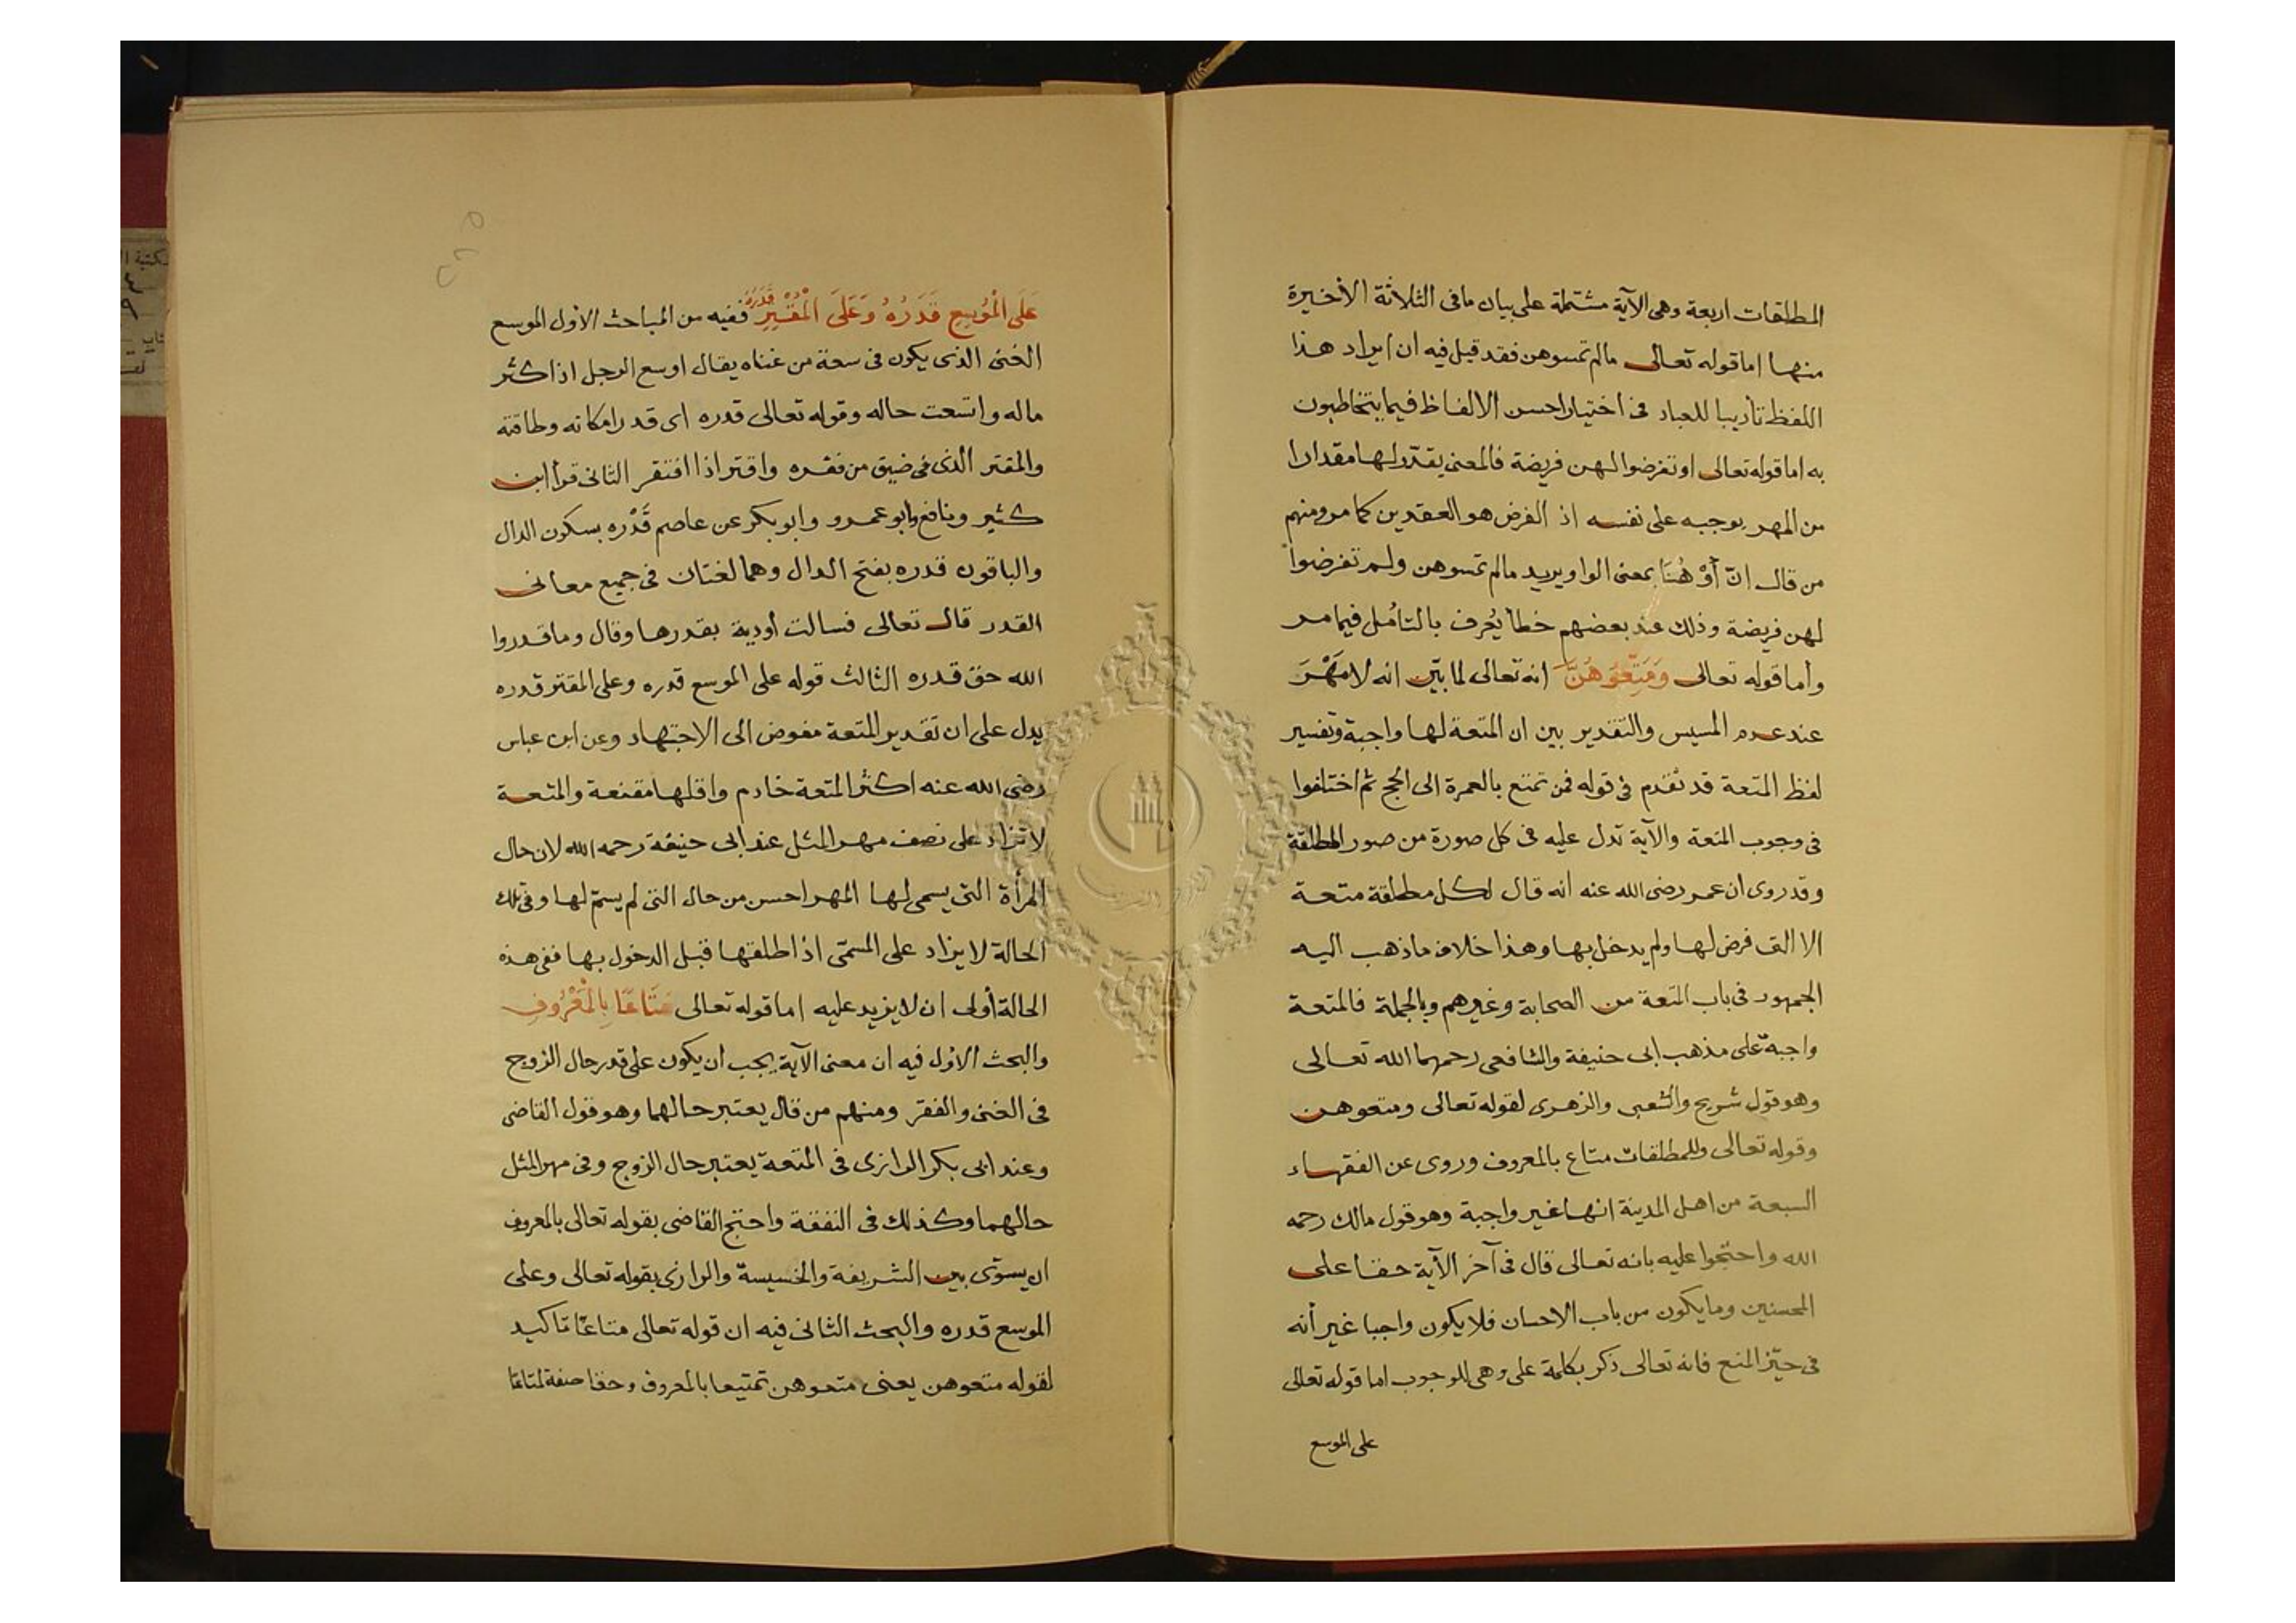 المطلقات اربعة وهى الآية مشتملة على بيان ما فى الثلاثة الأخيرة
منها اما قوله تعالى مالم تمسوهن فقد قيل فيه ان ايراد هذا
اللفظ تأديبا للعباد فى اختيار احسن الالفاظ فيما يتخاطبون
به اما قوله تعالى او تفرضوا لهن فريضة فالمعنى يقدّر لها مقدارا
من المهر يوجبه على نفسه اذ الفرض هو العقدين كما مر ومنهم
من قال انّ أَوْ هُنَا بمعنى الواو يريد مالم تمسوهن ولم تفرضوا
لهن فريضة وذلك عند بعضهم خطأ يُعرف بالتأمل فيما مر
وأما قوله تعالى وَمَتِّعُوهُنَّ انه تعالى لما بيّن انه لا مَهْرَ
عند عدم المسيس والتقدير بين ان المتعة لها واجبة وتفسير
لفظ المتعة قد تقدم فى قوله فمن تمتع بالعمرة الى الحج ثم اختلفوا
فى وجوب المتعة والآية تدل عليه فى كل صورة من صور المطلقة
وقد روى ان عمر رضى الله عنه انه قال لكل مطلقة متعة
الا التى فرض لها ولم يدخل بها وهذا خلاف ما ذهب اليه
الجمهور فى باب المتعة من الصحابة وغيرهم وبالجملة فالمتعة
واجبة على مذهب ابى حنيفة والشافعى رحمهما الله تعالى
وهو قول شريح والشعبى والزهرى لقوله تعالى ومتعوهن
وقوله تعالى وللمطلقات متاع بالمعروف وروى عن الفقهاء
السبعة من اهل المدينة انها غير واجبة وهو قول مالك رحمه
الله واحتجوا عليه بانه تعالى قال فى آخر الآية حقا على
المحسنين وما يكون من باب الاحسان فلا يكون واجبا غير أنه
فى حيّز المنع فانه تعالى ذكر بكلمة على وهى للوجوب اما قوله تعالى
على الموسع
عَلَى الْمُوسِعِ قَدَرُهُ وَعَلَى الْمُقْتِرِ قَدَرُهُ ففيه من المباحث الأول الموسع
الغنى الذى يكون فى سعة من غناه يقال اوسع الرجل اذا كثر
ماله واتسعت حاله وقوله تعالى قدره اى قدر امكانه وطاقته
والمقتر الذى فى ضيق من فقره واقتر اذا افتقر الثانى قرأ ابن
كثير ونافع وابو عمرو وابو بكر عن عاصم قَدْره بسكون الدال
والباقون قدره بفتح الدال وهما لغتان فى جميع معانى
القدر قال تعالى فسالت أودية بقدرها وقال وما قدروا
الله حق قدره الثالث قوله على الموسع قدره وعلى المقتر قدره
يدل على ان تقدير المتعة مفوض الى الاجتهاد وعن ابن عباس
رضى الله عنه اكثر المتعة خادم واقلها مقنعة والمتعة
لا تزاد على نصف مهر المثل عند ابى حنيفة رحمه الله لان حال
المرأة التى يسمى لها المهر احسن من حال التى لم يسمّ لها وفى تلك
الحالة لا يزاد على المسمّى اذا طلقها قبل الدخول بها ففى هذه
الحالة أولى ان لا يزيد عليه اما قوله تعالى مَتَاعًا بِالْمَعْرُوفِ
والبحث الأول فيه ان معنى الآية يجب ان يكون على قدر حال الزوج
فى الغنى والفقر ومنهم من قال يعتبر حالهما وهو قول القاضى
وعند ابى بكر الرازى فى المتعة يعتبر حال الزوج وفى مهر المثل
حالهما وكذلك فى النفقة واحتج القاضى بقوله تعالى بالمعروف
ان يسوّى بين الشريفة والخسيسة والرازى بقوله تعالى وعلى
الموسع قدره والبحث الثانى فيه ان قوله تعالى متاعًا تاكيد
لقوله متعوهن يعنى متعوهن تمتيعا بالمعروف وحقا صفة لمتاعًا